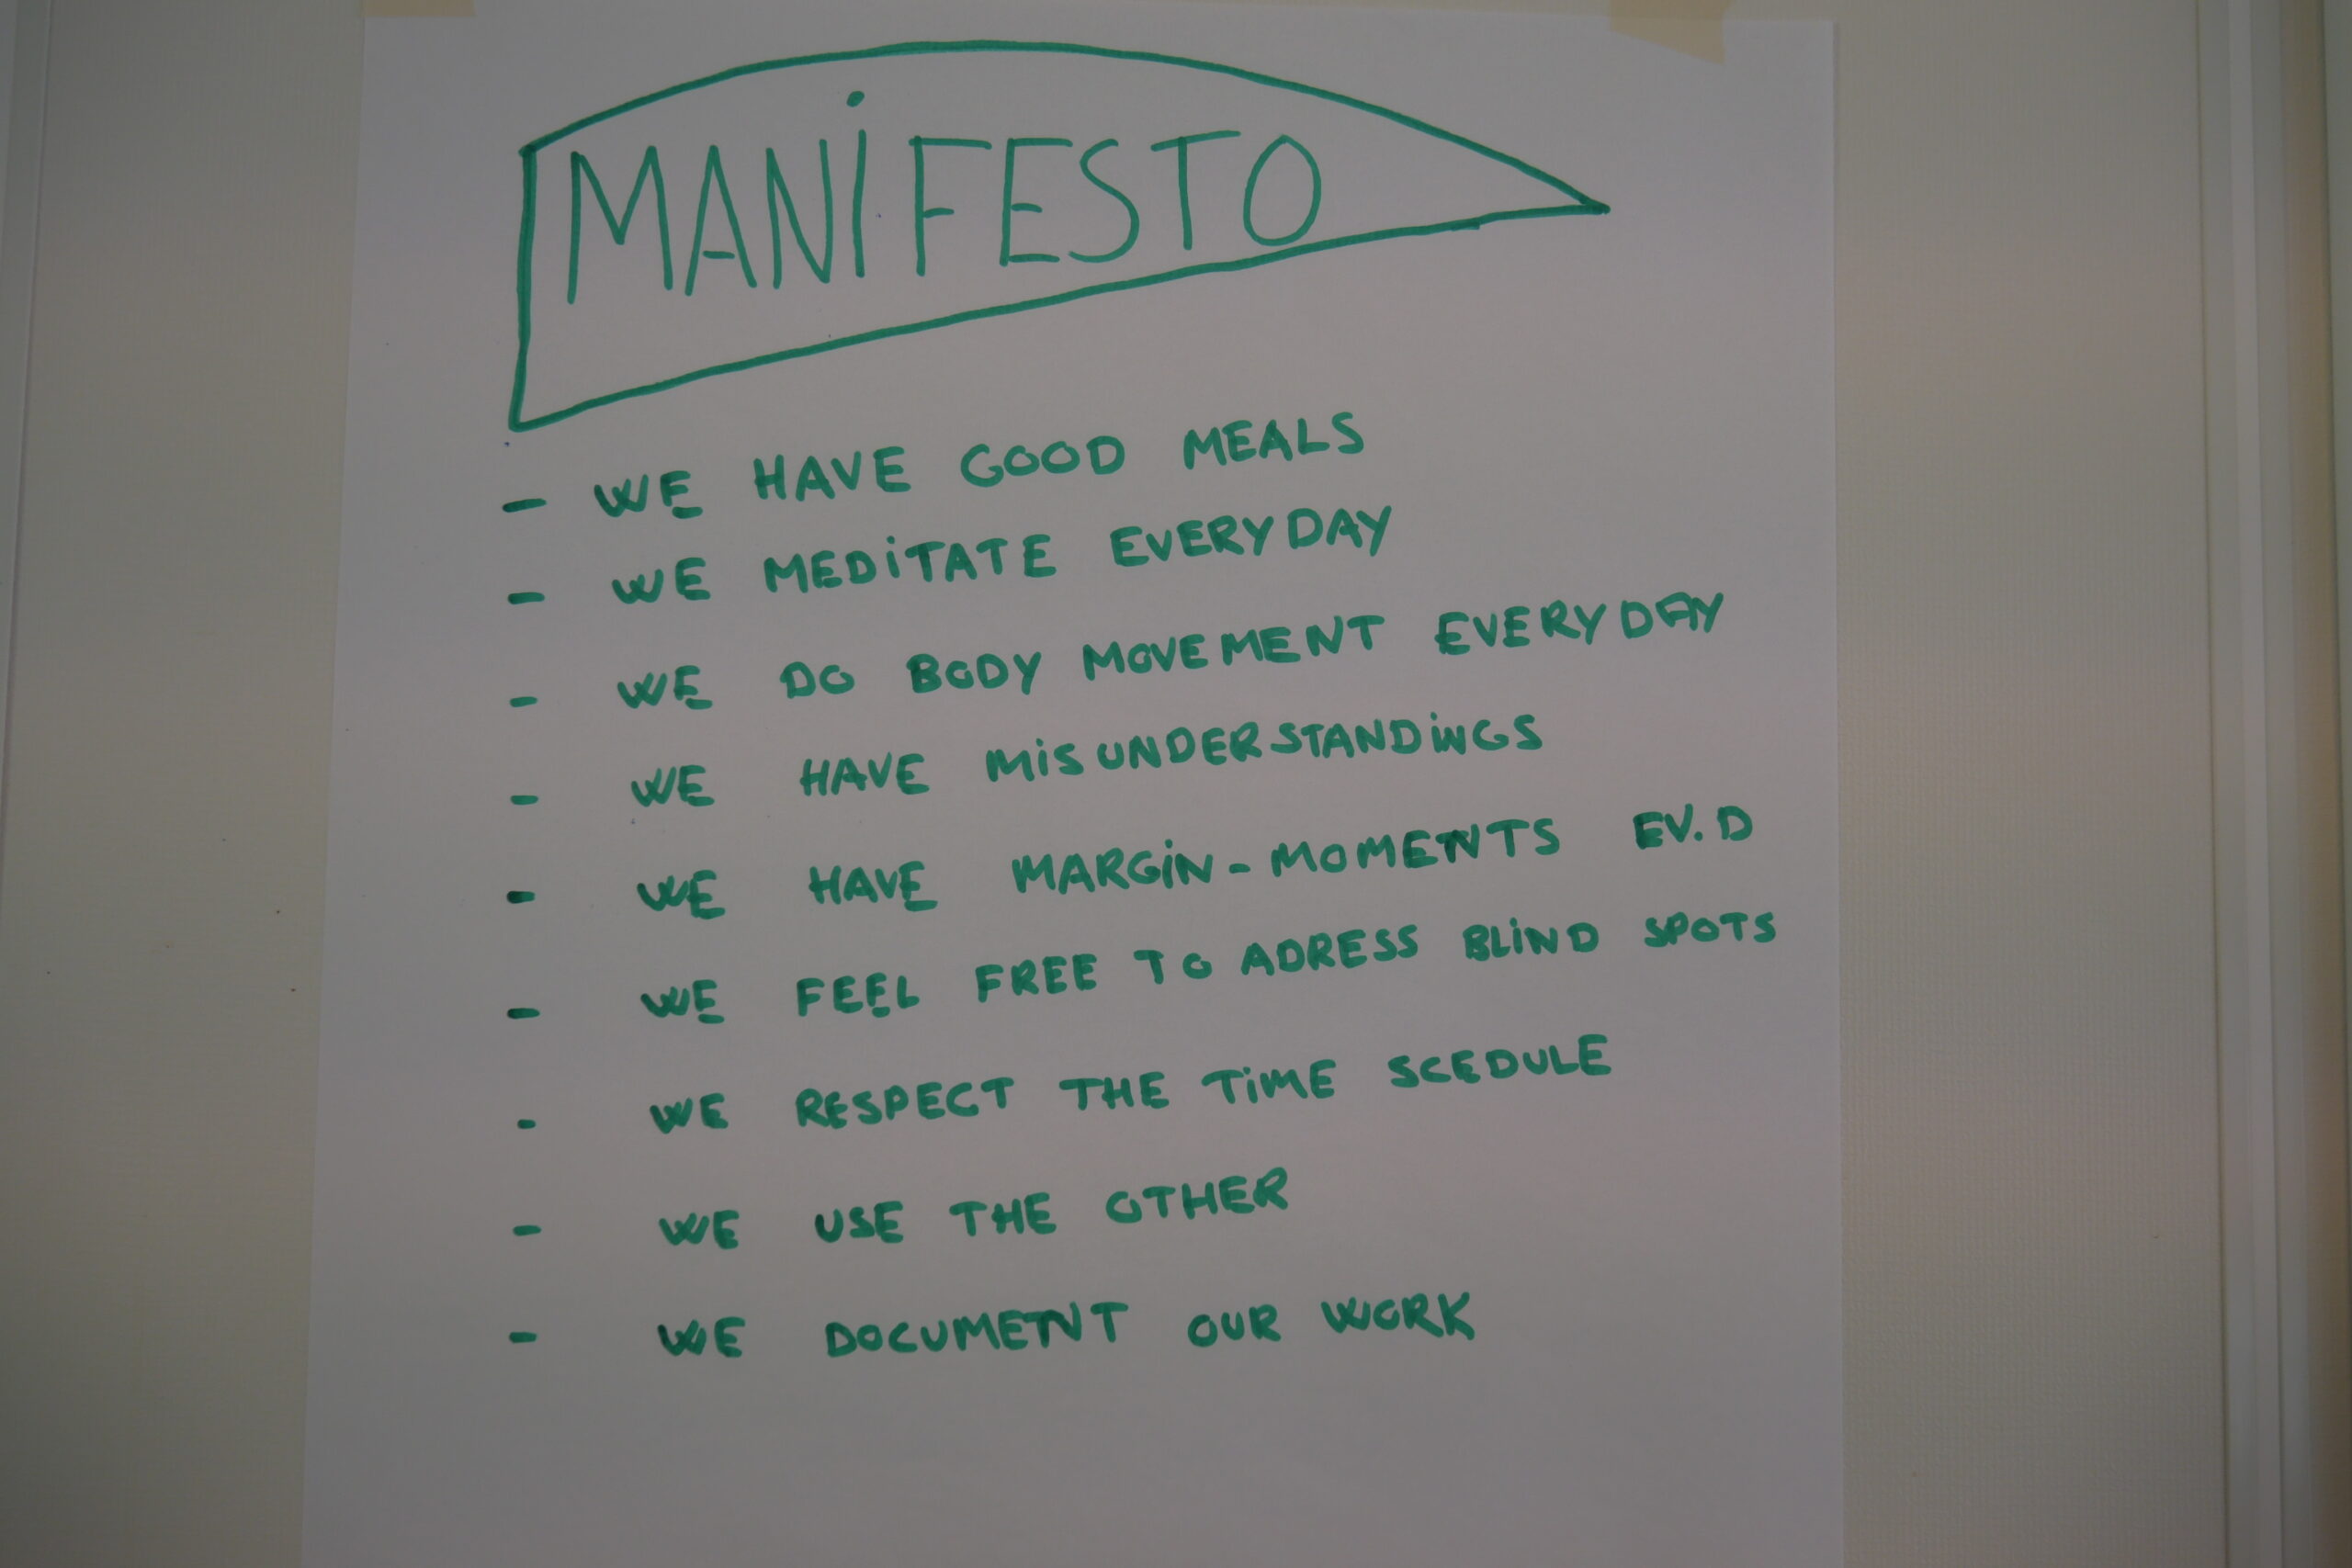 MANiFESTO
- WE HAVE GOOD MEALS
- WE MEDiTATE EVERYDAY
- WE DO BODY MOVEMENT EVERYDAY
- WE HAVE MiSUNDERSTANDiNGS
- WE HAVE MARGiN-MOMENTS EV.D
- WE FEEL FREE TO ADRESS BLiND SPOTS
- WE RESPECT THE TiME SCEDULE
- WE USE THE OTHER
- WE DOCUMENT OUR WORK